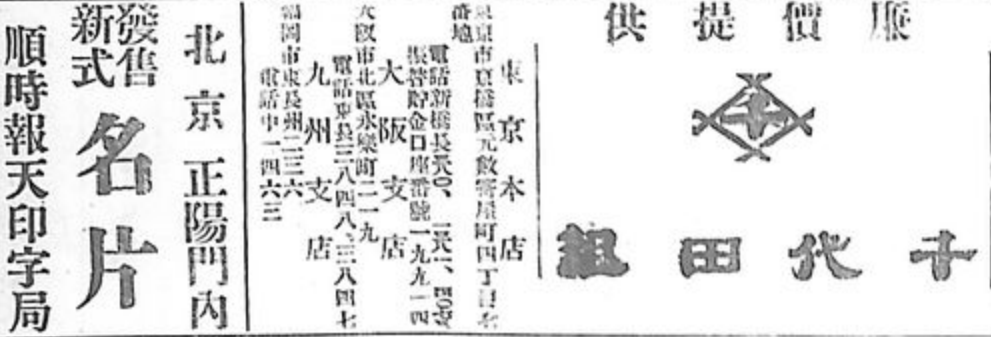 廉價提供
千代田組
東京本店
東京市京橋區元數寄屋町四丁目七番地
電話新橋長
振替貯金口座番號一九九一四
大阪支店
大阪市北區永樂町二一九
電話東長三八四八、三八四七
九州支店
福岡市東長州二三六
電話中一四六三
北京正陽門內
發售新式
名片
順時報天印字局